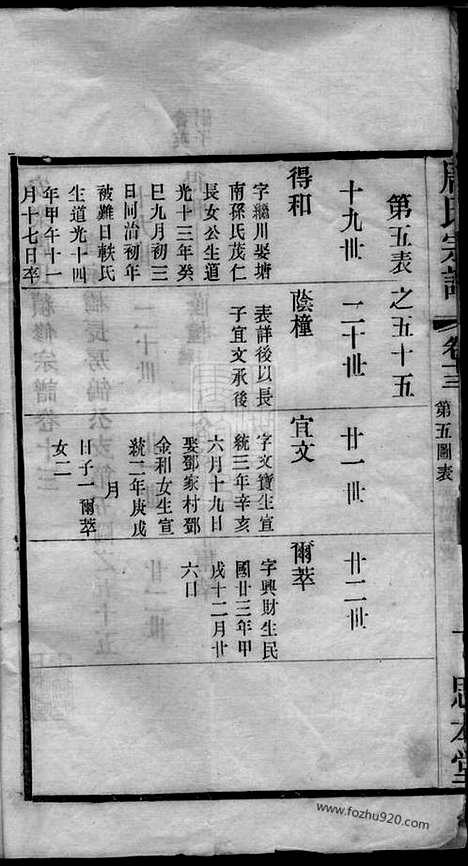 氏宗譜 卷十三 第五圖表
思本堂
第五表之五十五
十九世 二十世 廿一世 廿二世
得和
字繼川娶塘
南孫氏茂仁
長女公生道
光十三年癸
巳九月初三
日同治初年
被難日軼氏
生道光十四
年甲午十一
月十七日卒
蔭橦
表詳後以長
子宜文承後
宜文
字文寶生宣
統三年辛亥
六月十九日
娶鄧家村鄧
金和女生宣
統二年庚戌
月
日子一爾萃
女二
爾萃
字興財生民
國廿三年甲
戌十二月廿
六日
www.fozhu920.com